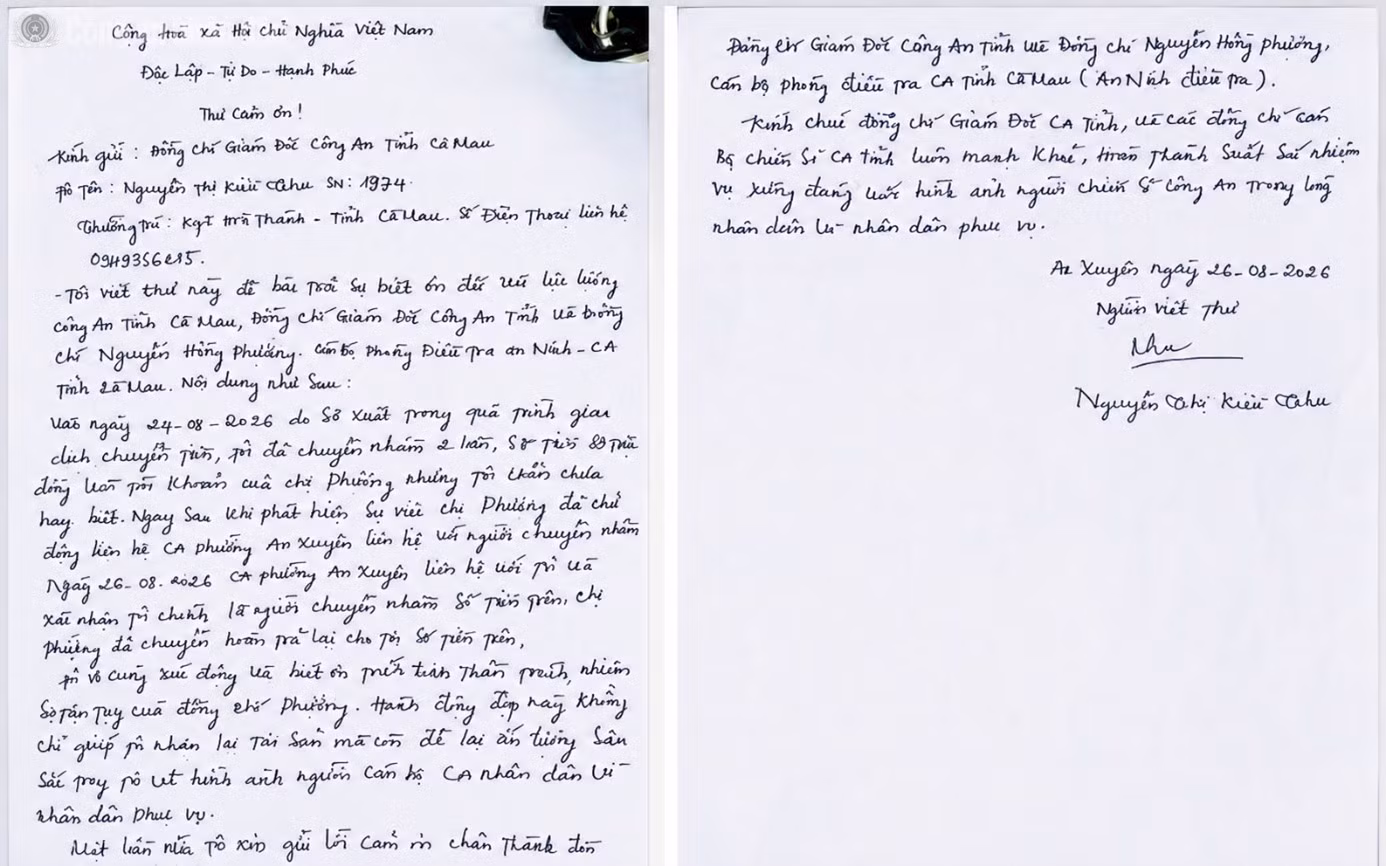 Cộng Hoà xã Hội chủ Nghĩa Việt Nam
Độc Lập - Tự Do - Hạnh Phúc
Thư Cảm ơn!
Kính gửi : Đồng chí Giám Đốc Công An Tỉnh Cà Mau
Họ Tên : Nguyễn Thị Kiều Thu SN: 1974.
Thường Trú : Hoà Thành - Tỉnh Cà Mau. Số Điện Thoại liên hệ
- Tôi viết thư này để bài trải sự biết ơn đối với lực lượng
công An Tỉnh Cà Mau, Đồng chí Giám Đốc Công An Tỉnh và Đồng
chí Nguyễn Hồng Phương. Cán bộ Phòng Điều Tra an Ninh - CA
Tỉnh Cà Mau. Nội dung như Sau :
Vào ngày 24-08-2026 do Sơ xuất trong quá trình giao
dịch chuyển tiền, tôi đã chuyển nhầm 2 lần, số tiền
đồng vào tài khoản của chị Phương nhưng Tôi vẫn chưa
hay biết. Ngay sau khi phát hiện Sự việc chị Phương đã chủ
động liên hệ CA phường An Xuyên liên hệ với người chuyển nhầm
Ngày 26-08-2026 CA phường An Xuyên liên hệ với tôi và
xác nhận tôi chính là người chuyển nhầm số tiền trên, chị
Phương đã chuyển hoàn trả lại cho tôi số tiền trên,
tôi vô cùng xúc động và biết ơn trước tinh thần trách nhiệm
Sự tận tụy của đồng chí Phương. Hành động đẹp này không
chỉ giúp tôi nhận lại tài sản mà còn để lại ấn tượng sâu
sắc trong tôi về hình ảnh người cán bộ CA nhân dân vì
nhân dân phục vụ.
Một lần nữa tô xin gửi lời cảm ơn chân thành đến
Đảng ủy Giám Đốc Công An Tỉnh và Đồng chí Nguyễn Hồng Phương,
cán bộ phòng điều tra CA Tỉnh Cà Mau (An Ninh điều tra).
Kính chúc đồng chí Giám Đốc CA Tỉnh, và các đồng chí cán
Bộ chiến sĩ CA tỉnh luôn mạnh khoẻ, Hoàn Thành Suất Sắc nhiệm
vụ xứng đáng với hình ảnh người chiến sĩ Công An trong lòng
nhân dân vì nhân dân phục vụ.
An Xuyên ngày 26-08-2026
Người viết Thư
Thu
Nguyễn Thị Kiều Thu